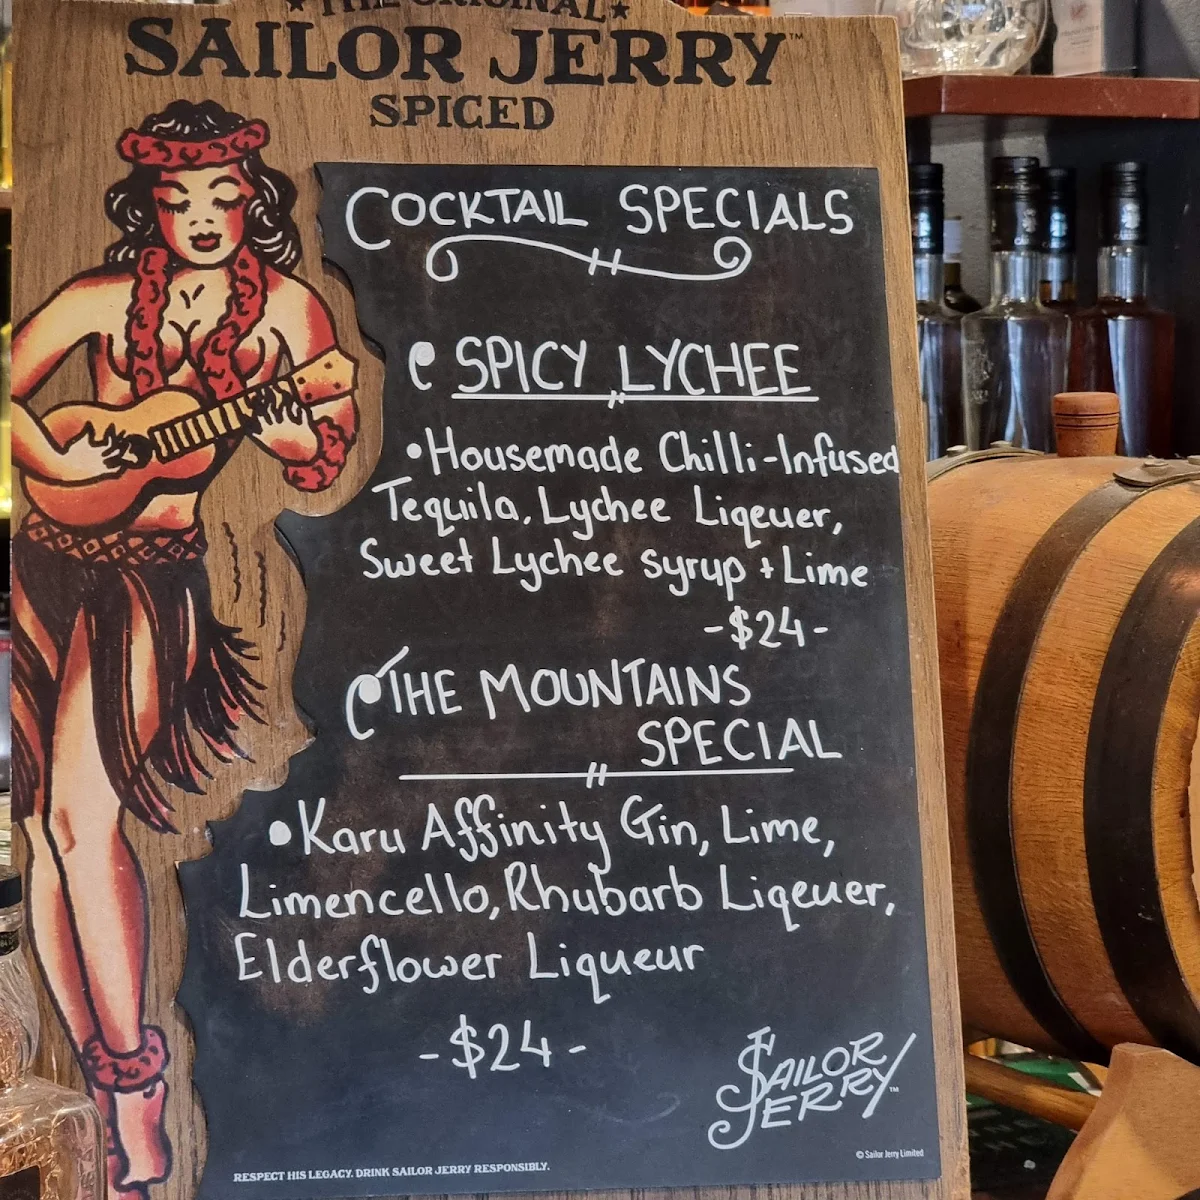 ★THE ORIGINAL★
SAILOR JERRY™
SPICED
COCKTAIL SPECIALS
SPICY LYCHEE
•Housemade Chilli-Infused
Tequila, Lychee Liqeuer,
Sweet Lychee syrup + Lime
-$24-
THE MOUNTAINS
SPECIAL
•Karu Affinity Gin, Lime,
Limencello, Rhubarb Liqeuer,
Elderflower Liqueur
-$24-
SAILOR
JERRY™
© Sailor Jerry Limited
RESPECT HIS LEGACY. DRINK SAILOR JERRY RESPONSIBLY.